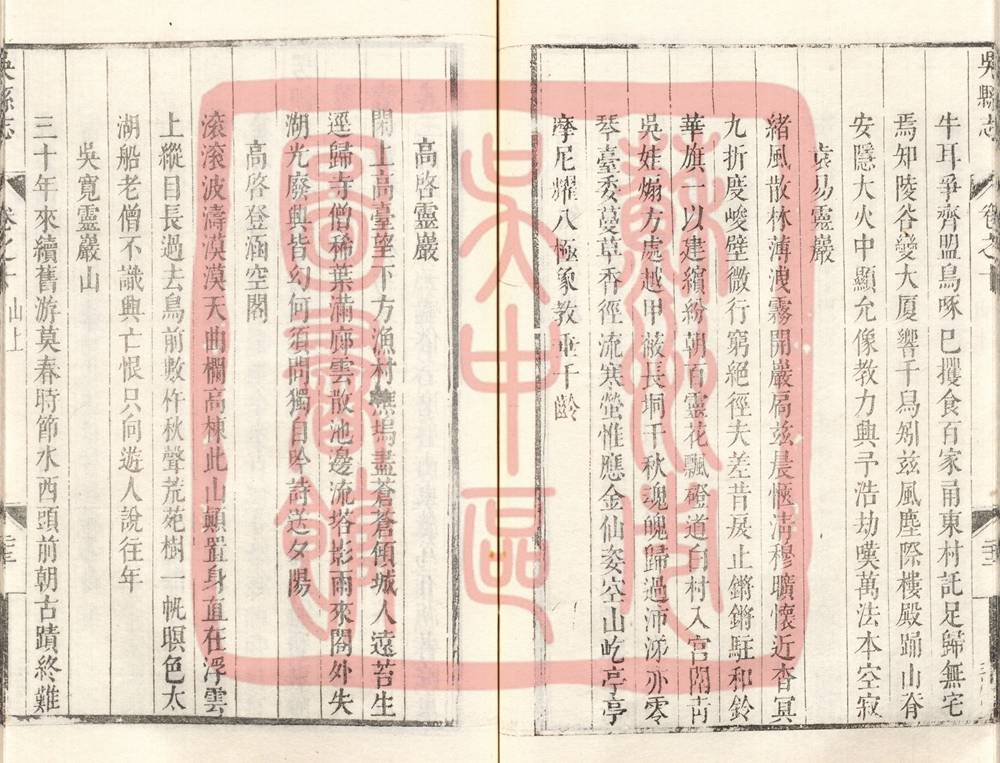 吳縣志
牛耳爭齊盟烏啄巳攫食百家甬東村託足歸無宅
焉知陵谷變大厦響千鳥矧兹風塵際樓殿踊山脊
安隱大火中顯允像教力興予浩劫嘆萬法本空寂
袁易靈巖
緒風散林薄洩霧開巖扃兹晨愜清穆曠懷近杳冥
九折度峻壁微行窮絕徑夫差昔戾止鏘鏘駐和鈴
華旗一以建繽紛朝百靈花飄磴道白村入宮閣靑
吳娃煽方處越甲菽長坰千秋魂魄歸過沛涕亦零
琴臺委蔓草香徑流寒螢惟應金仙姿空山屹亭亭
摩尼耀八極象教垂千齡
高啓靈巖
閑上高臺望下方漁村樵塢盡蒼蒼傾城人遠苔生
逕歸寺僧稀葉滿廊雲散池邊流塔影雨來閣外失
湖光廢興皆幻何須問獨自吟詩送夕陽
高啓登涵空閣
滾滾波濤漠漠天曲欄高棟此山巔置身直在浮雲
上縱目長過去鳥前數杵秋聲荒苑樹一帆暝色太
湖船老僧不識興亡恨只向遊人說往年
吳寬靈巖山
三十年來續舊游莫春時節水西頭前朝古蹟終難
吳縣志
卷之十
山上
蘇州市
吳中區
圖書館